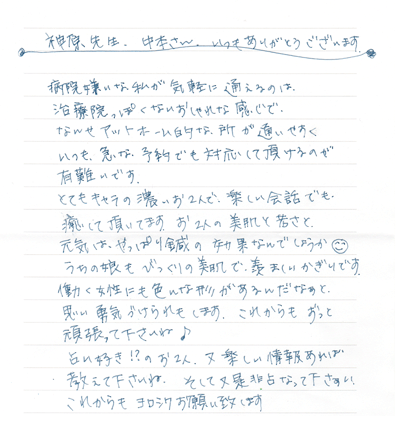 神原先生、中本さん、いつもありがとうございます
病院嫌いな私が気軽に通えるのは、
治療院っぽくないおしゃれな感じで、
なんせアットホーム的な所が通いやすく
いつも、急な予約でも対応して頂けるのが
有難いです。
とてもキャラの濃いお2人で、楽しい会話でも、
癒して頂いてます お2人の美肌と若さと、
元気は、やっぱり鍼の効果なんでしょうか
うちの娘もびっくりの美肌で、羨ましいかぎりです。
働く女性にも色んな形があるんだなぁと、
思い勇気づけられもします。これからもずっと
頑張って下さいね♪
占い好き!?のお2人、又楽しい情報あれば
教えて下さいね、そして又是非占なって下さい
これからもヨロシクお願い致します